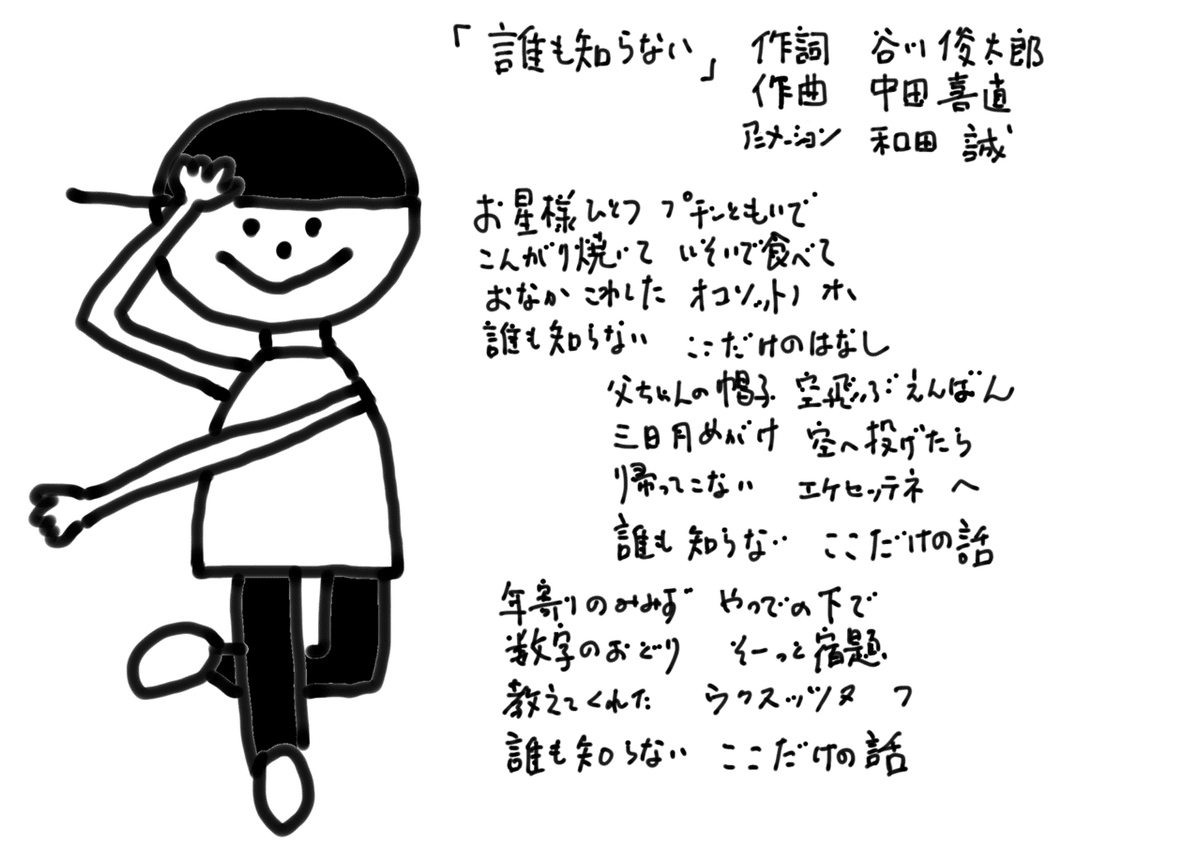 「誰も知らない」 作詞 谷川俊太郎
作曲 中田喜直
アニメーション 和田 誠
お星様ひとつ プチンともいで
こんがり焼いて いそいで食べて
おなかこわした オコソットノ ホ
誰も知らない ここだけのはなし
父ちゃんの帽子 空飛ぶえんばん
三日月めがけ 空へ投げたら
帰ってこない エケセッテネ ヘ
誰も知らない ここだけの話
年寄りのみみず やつでの下で
数字のおどり そーっと宿題
教えてくれた ウクスッツヌ フ
誰も知らない ここだけの話